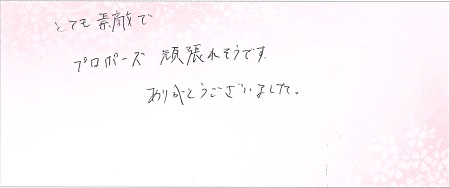 とても素敵で
プロポーズ 頑張れそうです。
ありがとうございました。